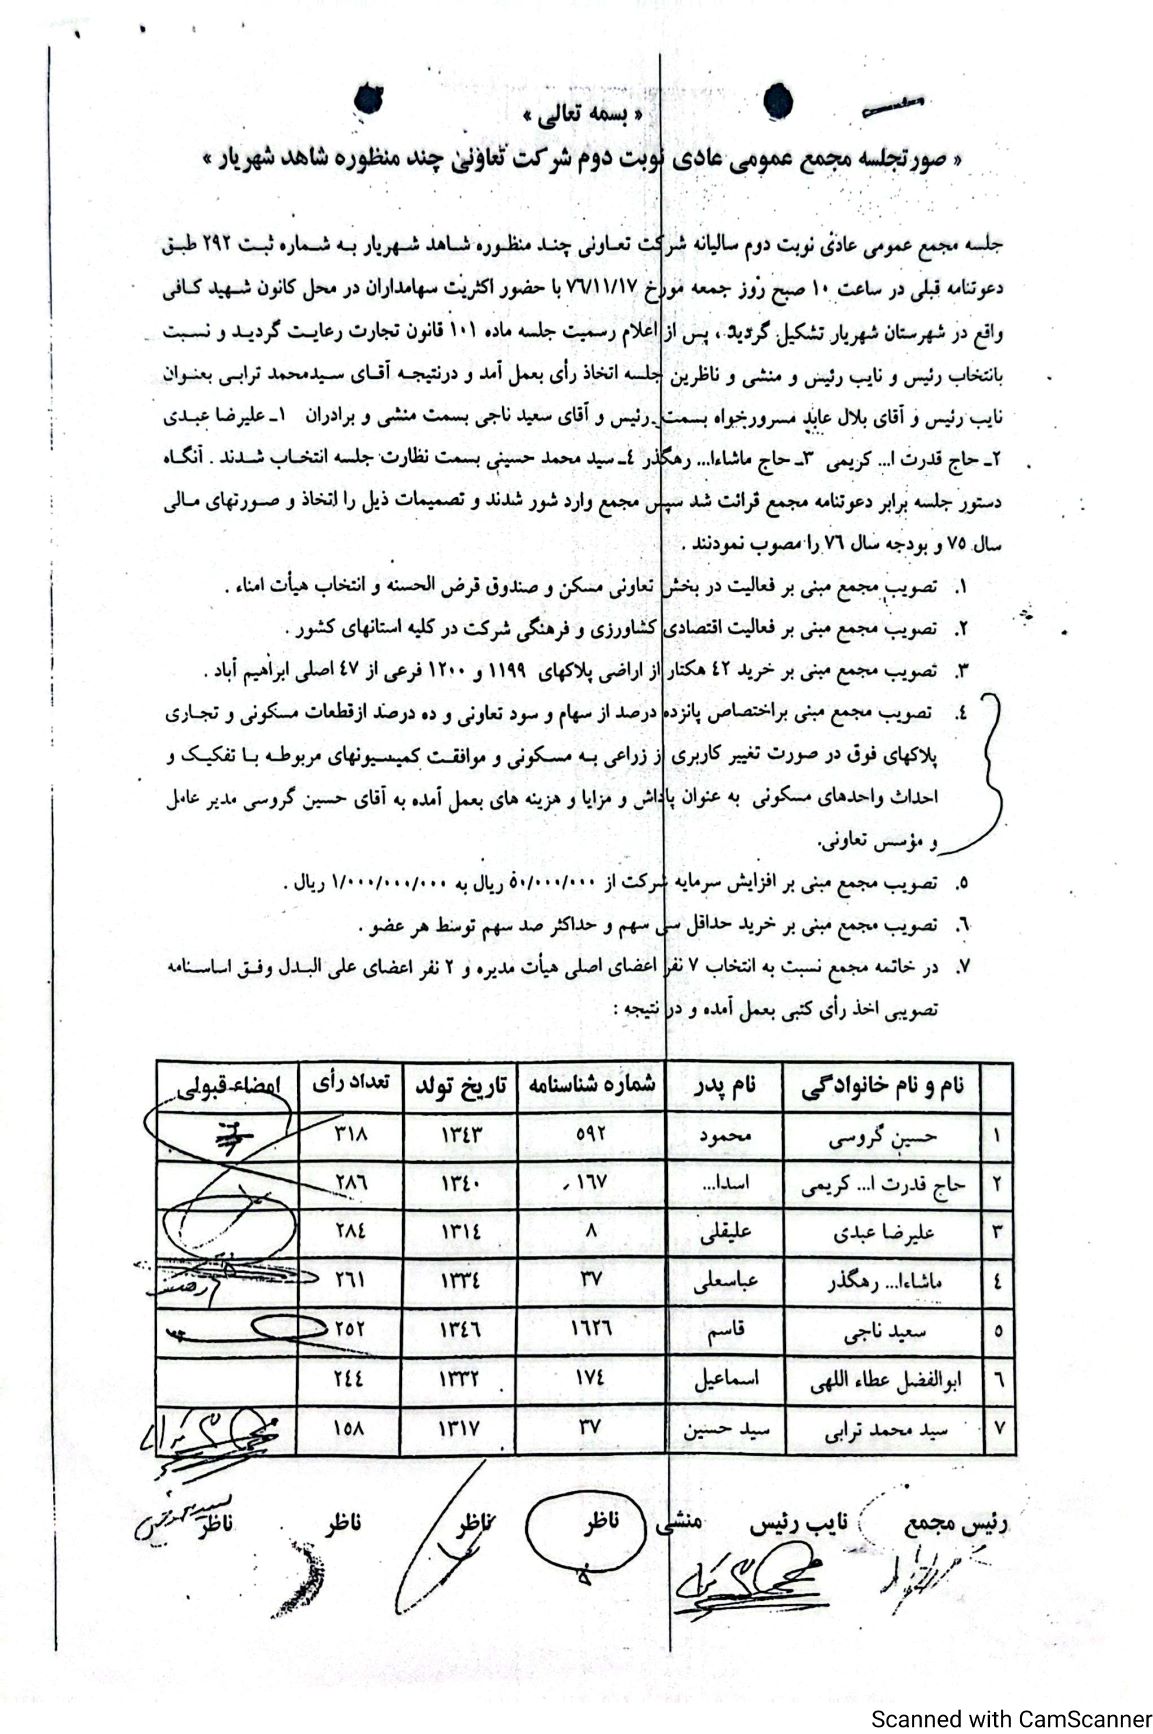 « بسمه تعالی »
« صورتجلسه مجمع عمومی عادی نوبت دوم شرکت تعاونی چند منظوره شاهد شهریار »
جلسه مجمع عمومی عادی نوبت دوم سالیانه شرکت تعاونی چند منظوره شاهد شهریار به شماره ثبت ۲۹۲ طبق
دعوتنامه قبلی در ساعت ۱۰ صبح روز جمعه مورخ ۷۶/۱۱/۱۷ با حضور اکثریت سهامداران در محل کانون شهید کافی
واقع در شهرستان شهریار تشکیل گردید ، پس از اعلام رسمیت جلسه ماده ۱۰۱ قانون تجارت رعایت گردید و نسبت
بانتخاب رئیس و نایب رئیس و منشی و ناظرین جلسه اتخاذ رأی بعمل آمد و درنتیجه آقای سیدمحمد ترابی بعنوان
نایب رئیس و آقای بلال عابد مسرورخواه بسمت رئیس و آقای سعید ناجی بسمت منشی و برادران ۱ـ علیرضا عبدی
۲ـ حاج قدرت ا... کریمی ۳ـ حاج ماشاءا... رهگذر ٤ـ سید محمد حسینی بسمت نظارت جلسه انتخاب شدند . آنگاه
دستور جلسه برابر دعوتنامه مجمع قرائت شد سپس مجمع وارد شور شدند و تصمیمات ذیل را اتخاذ و صورتهای مالی
سال ۷۵ و بودجه سال ۷۶ را مصوب نمودنند .
۱. تصویب مجمع مبنی بر فعالیت در بخش تعاونی مسکن و صندوق قرض الحسنه و انتخاب هیأت امناء .
۲. تصویب مجمع مبنی بر فعالیت اقتصادی کشاورزی و فرهنگی شرکت در کلیه استانهای کشور .
۳. تصویب مجمع مبنی بر خرید ٤۲ هکتار از اراضی پلاکهای ۱۱۹۹ و ۱۲۰۰ فرعی از ٤۷ اصلی ابراهیم آباد .
٤. تصویب مجمع مبنی براختصاص پانزده درصد از سهام و سود تعاونی و ده درصد ازقطعات مسکونی و تجاری
پلاکهای فوق در صورت تغییر کاربری از زراعی به مسکونی و موافقت کمیسیونهای مربوطه با تفکیک و
احداث واحدهای مسکونی به عنوان پاداش و مزایا و هزینه های بعمل آمده به آقای حسین گروسی مدیر عامل
و مؤسس تعاونی.
۵. تصویب مجمع مبنی بر افزایش سرمایه شرکت از ۵۰/۰۰۰/۰۰۰ ریال به ۱/۰۰۰/۰۰۰/۰۰۰ ریال .
٦. تصویب مجمع مبنی بر خرید حداقل سی سهم و حداکثر صد سهم توسط هر عضو .
۷. در خاتمه مجمع نسبت به انتخاب ۷ نفر اعضای اصلی هیأت مدیره و ۲ نفر اعضای علی البدل وفق اساسنامه
تصویبی اخذ رأی کتبی بعمل آمده و در نتیجه :
نام و نام خانوادگی نام پدر شماره شناسنامه تاریخ تولد تعداد رأی امضاء قبولی
۱ حسین گروسی محمود ۵۹۲ ۱۳٤۳ ۳۱۸
۲ حاج قدرت ا... کریمی اسدا... ۱٦۷ ۱۳٤۰ ۲۸٦
۳ علیرضا عبدی علیقلی ۸ ۱۳۱٤ ۲۸٤
٤ ماشاءا... رهگذر عباسعلی ۳۷ ۱۳۳٤ ۲٦۱
۵ سعید ناجی قاسم ۱٦۲٦ ۱۳٤٦ ۲۵۲
٦ ابوالفضل عطاء اللهی اسماعیل ۱۷٤ ۱۳۳۲ ۲٤٤
۷ سید محمد ترابی سید حسین ۳۷ ۱۳۱۷ ۱۵۸
رئیس مجمع نایب رئیس منشی ناظر ناظر ناظر ناظر
Scanned with CamScanner